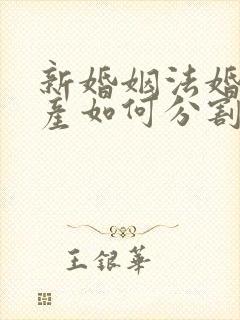 新婚姻法婚
产如何分割
王银华